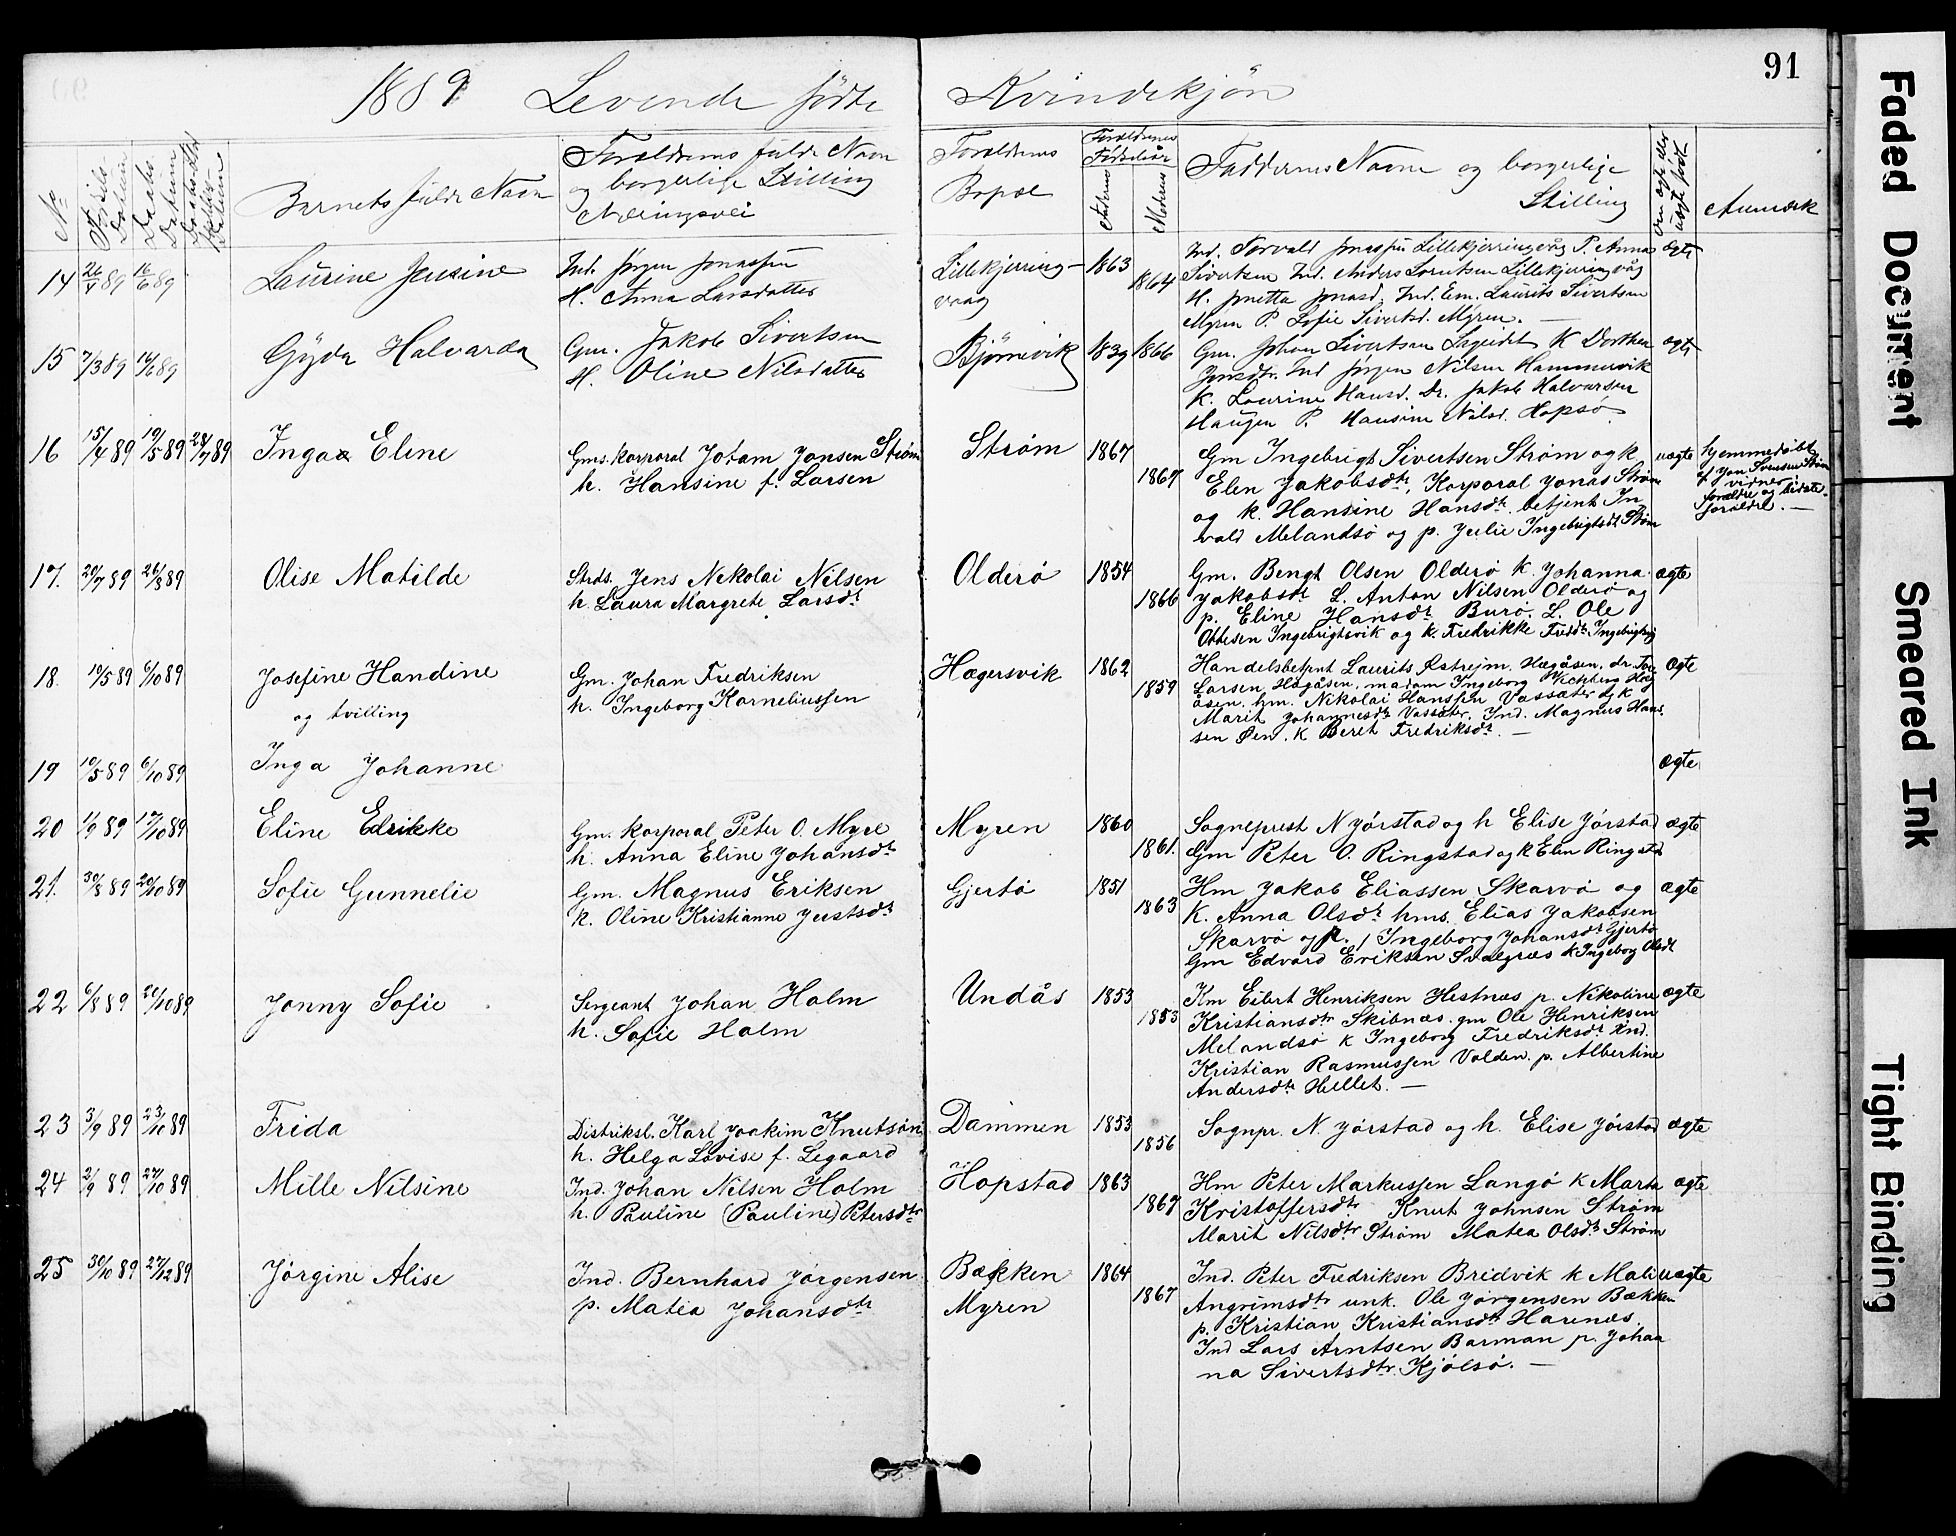 91
1889 Levende födte Kvindekjön
No
Födsels Datum
Daabs Datum
Barnets fulde Navn
Forældrenes fulde Navn
og borgerlige Stilling
Næringsvei
Forældrenes
Bopæl
Forældrenes
Födselsår
Faderens
Moderens
Faddernes Navne og borgerlige
Stilling
om ægte eller
uægte født
Anmærk
14 26/4 89 16/6 89 Laurine Jensine
Ind. Jørgen Jonassen
H. Anna Larsdatter
Lillekjerring-
vaag
1863
1864
Ind. Torvald Jonassen Lillekjerringvåg P. Anna
Sivertsen Ind. Anders Lorntsen Lillekjerringvåg
H. Jonetta Jonasd. Ind. Em. Laurits Sivertsen
Myren P. Sofie Sivertsd. Myren. —
ægte
15 7/3 89 16/6 89 Gyda Halvarda
Gm. Jakob Sivertsen
H. Oline Nilsdatter
Bjørnevik
1839 1866
Gm. Johan Sivertsen K Dorthea
Jonsdtr. Ind Jörgen Nilsen Hammervik
K. Laurine Hansd. Dr. Jakob Halvorsen
Haugen P. Hansine Nilsd. Hopsø
ægte
16 15/4 89 19/5 89 28/7 89 Inga Eline
Gms. Korporal Jotam Jonsen Strøm
h. Hansine f. Larsen
Strøm
1867
1867
Gm Ingebrigt Sivertsen Strøm og k
Elen Jakobsdtr, Korporal Jonas Strøm
og k. Hansine Hansdtr. betjent In
vald Melandsø og p. Julie Ingebrigtsdtr Strøm
uægte
hjemmedøbt
af Jon Svensen Strøm
vidner:
forældre og bedste-
forældre. —
17. 20/7 89 26/8 89 Olise Matilde
Strds. Jens Nekolai Nilsen
h. Laura Margrete Larsdtr
Olderö
1854
1866
Gm. Bengt Olsen Olderö k. Johanna
Jakobsdtr L. Anton Nilsen Olderö og
p. Eline Hansdtr Burö. L. Ole
Ottesen Ingebrigtsvik og k. Fredrikke Freddtr Ingebrigtsvig
ægte
18. 19/5 89 6/10 89 Josefine Handine
og tvilling
Gm. Johan Fredriksen
h. Ingeborg Korneliussen
Hægersvik
1862
1859
Handelsbetjent Laurits Østrejm. Hægåsen. dr. Tore
Larsen, Hægåsen, madam Ingeborg Wichberg Hæg
åsen. hm. Nikolai Hanssen Vassæter og k
Marit Johannesdtr Vassæter. Ind. Magnus Hans
sen Øen. K Beret Fredriksdtr. —
ægte
19 19/5 89 6/10 89 Inga Johanne
ægte
20 1/9 89 17/10 89 Eline Edrikke
Gm. korporal Peter O. Myre
h. Anna Eline Johansdtr
Myren
1860
1861.
Sogneprest N Jörstad og h Elise Jörstad
Gm Peter O. Ringstad og k Elen Ringstd
ægte
21. 30/8 89 20/10 89 Sofie Gunnelie
Gm. Magnus Eriksen
k. Oline Kristianne Justsdtr
Gjertö
1851
1863
Hm Jakob Eliassen Skarvö og
K. Anna Olsdtr hms. Elias Jakobsen
Skarvö og p. Ingeborg Johansdtr Gjertö
Gm Edvard Eriksen Svalgræs k Ingeborg Olsdtr
ægte
22 6/8 89 20/10 89 Jonny Sofie
Sergeant Johan Holm
h. Sofie Holm
Undås
1853
1853
Km Eilert Henriksen Hestnæs p. Nikoline
Kristiansdtr Skibnæs. gm Ole Henriksen
Melandsö k Ingeborg Fredriksdtr Ind.
Kristian Rasmussen Valden. p. Albertine
Andersdtr Hellet. —
ægte
23 3/9 89 23/10 89 Frida
Distriksl. Karl Joakim Knutsön
h. Helga Lovise f. Legaard
Dammen
1853
1856
Sognpr. N. Jörstad og h. Elise Jörstad
ægte
24 2/9 89 27/10 89 Mille Nilsine
Ind. Johan Nilsen Holm
h. Pauline (Pauline) Petersdtr
Hopstad
1863
1867
Hm Peter Markussen Langö k Marta
Kristoffersdtr Knut Johnsen Strøm
Marit Nilsdtr Strøm Matea Olsdtr Strøm
ægte
25 30/10 89 27/12 89 Jörgine Alise
Ind. Bernhard Jörgensen
p. Matea Johansdtr
Bækken
Myren
1864
1867
Ind. Peter Fredriksen Bredvik k Mali
Angrimsdtr unk. Ole Jörgensen Bækken
p. Kristian Kristiansdtr Harenæs
Ind Lars Arntsen Barman p. Johan
na Sivertsdtr Kjölsö. —
uægte
Faded Document
Smeared Ink
Tight Binding